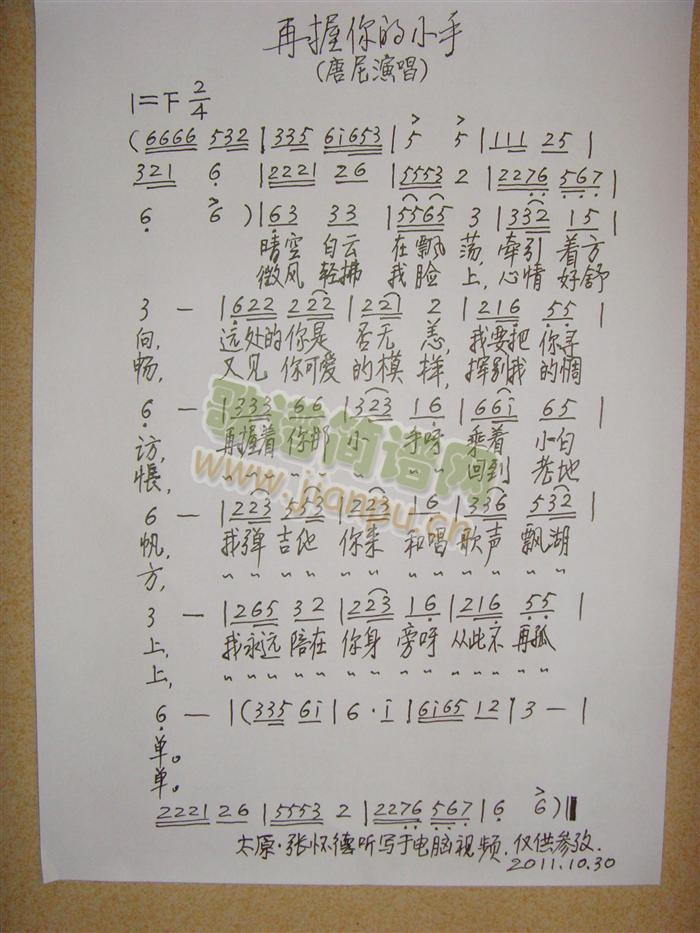 再握你的小手
(唐尼演唱)
1=下 2/4
(6666 532 | 335 6i653 | 5 5 | 111 25 |
321 6 | 2221 26 | 5553 2 | 2276 567 |
6 6 ) | 63 33 | 5565 3 | 332 15 |
晴空 白云 在飘 荡, 牵引 着方
微风 轻拂 我脸 上, 心情 好舒
3 — | 622 222 | 221 2 | 216 55 |
向, 远处的 你是 否无 恙, 我要把 你寻
畅, 又见 你可爱 的模 样, 挥别我 的惆
6 — | 333 66 | 323 16 | 66i 65 |
访, 再握着 你那 小 手呀 乘着 小白
怅, 〃 〃 〃 〃 〃 〃 回到 老地
6 — | 223 553 | 223 16 | 336 532 |
帆, 我弹 吉他 你来 和唱 歌声 飘湖
方, 〃 〃 〃 〃 〃 〃 〃 〃 〃 〃
3 — | 265 32 | 223 16 | 216 55 |
上, 我永远 陪在 你身 旁呀 从此不 再孤
上, 〃 〃 〃 〃 〃 〃 〃 〃 〃 〃
6 — | (335 6i | 6 · i | 6i65 12 | 3 — |
单。
单。
2221 26 | 5553 2 | 2276 567 | 6 6 )‖
太原·张怀德听写于电脑视频. 仅供参攷.
2011.10.30
歌谱简谱网
www.jianpu.cn